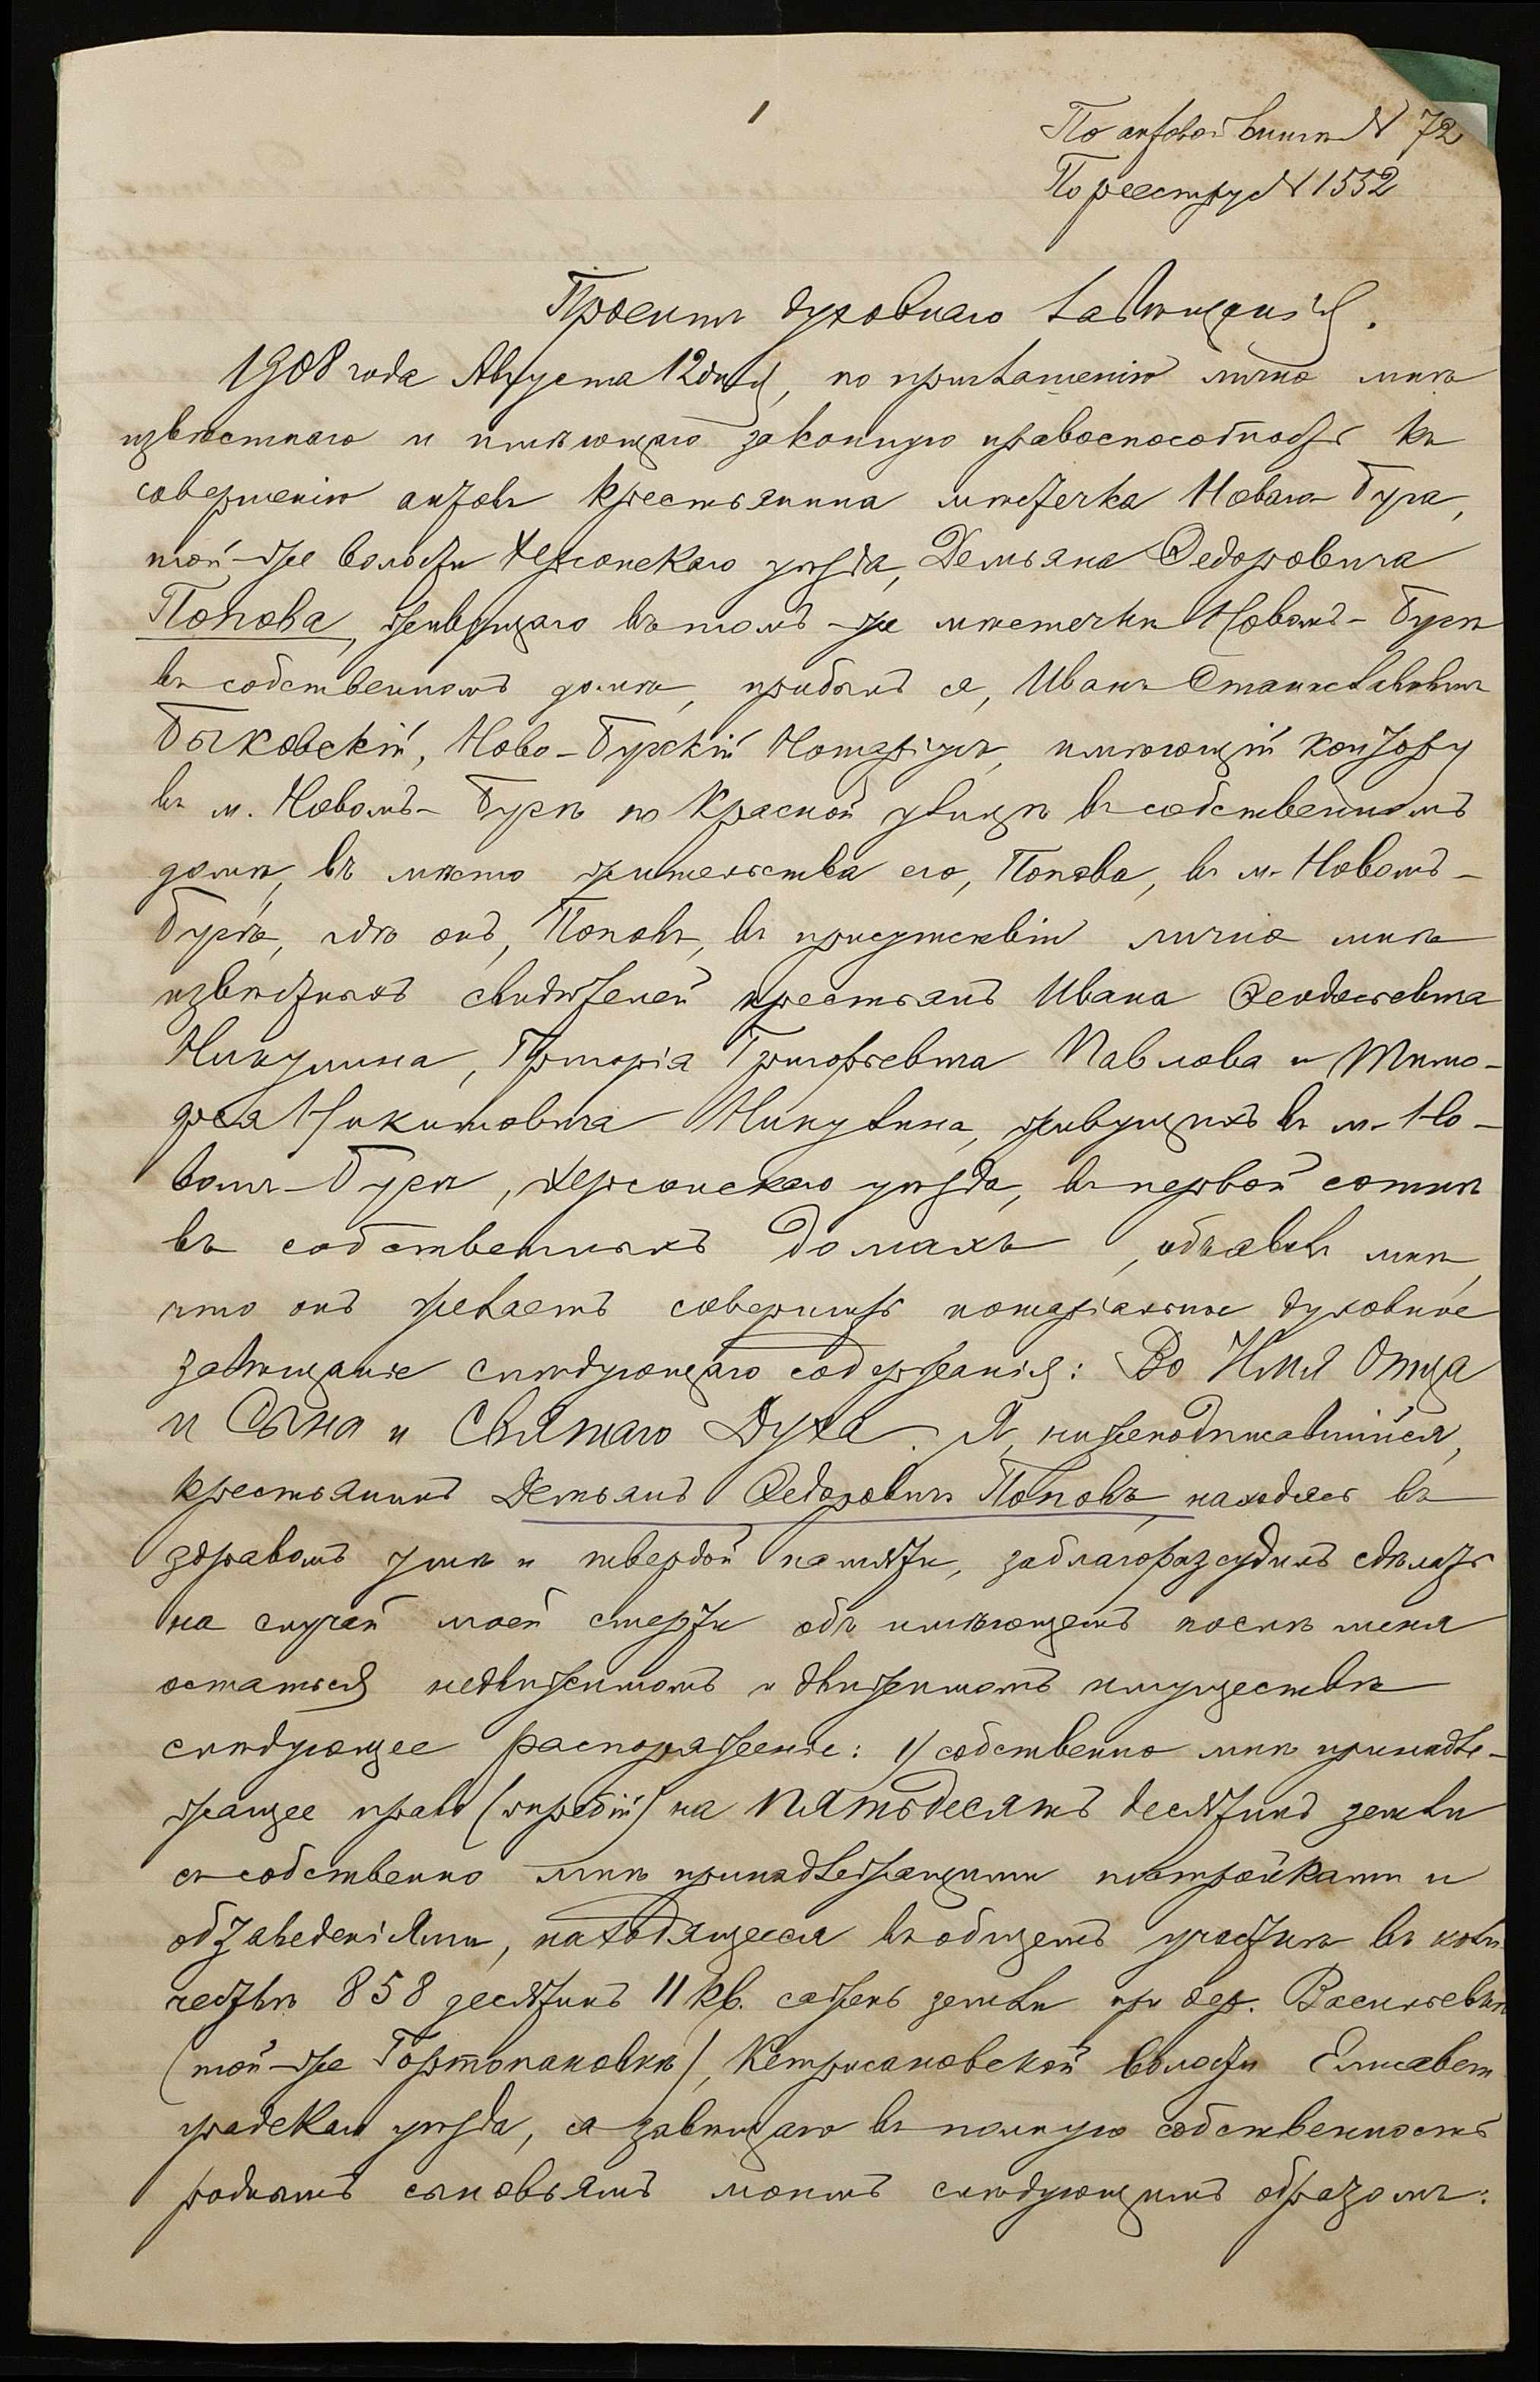 1
По актовой книгѣ № 72
По реестру № 1552
Проектъ духовнаго завѣщанія.
1908 года Августа 12 дня, по приглашенію лично мнѣ
извѣстнаго и имѣющаго законную правоспособность къ
совершенію актовъ крестьянина мѣстечка Новаго-Буга,
той-же волости Херсонскаго уѣзда, Демьяна Федоровича
Попова, живущаго въ томъ-же мѣстечкѣ Новомъ-Бугѣ
въ собственномъ домѣ, прибылъ я, Иванъ Станиславовичъ
Быковскій, Ново-Бугскій Нотаріусъ, имѣющій контору
въ м. Новомъ-Бугѣ по Красной улицѣ въ собственномъ
домѣ, въ мѣсто жительства его, Попова, въ м. Новомъ-
Бугѣ, гдѣ онъ, Поповъ, въ присутствіи лично мнѣ
извѣстныхъ свидѣтелей крестьянъ Ивана Феодосьевича
Никулина, Григорія Григорьевича Павлова и Тимо-
фея Никитовича Никулина, живущихъ въ м. Но-
вомъ-Бугѣ, Херсонскаго уѣзда, въ первой сотнѣ
въ собственныхъ домахъ, объявилъ мнѣ,
что онъ желаетъ совершить нотаріальное духовное
завѣщаніе слѣдующаго содержанія: Во Имя Отца
и Сына и Святаго Духа. Я, нижеподписавшійся,
крестьянинъ Демьянъ Федоровичъ Поповъ, находясь въ
здравомъ умѣ и твердой памяти, заблагоразсудилъ сдѣлать
на случай моей смерти объ имѣющемъ послѣ меня
остаться недвижимомъ и движимомъ имуществѣ
слѣдующее распоряженіе: 1/ собственно мнѣ принадле-
жащее право (жребій) на пятьдесятъ десятинъ земли
съ собственно мнѣ принадлежащими постройками и
обзаведеніями, находящееся въ общемъ участкѣ въ коли
чествѣ 858 десятинъ 11 кв. сажень земли при дер. Васильевкѣ
(той-же Гортопановкѣ), Кетрисановской волости Елисавет
градскаго уѣзда, я завѣщаю въ полную собственность
роднымъ сыновьямъ моимъ слѣдующимъ образомъ: